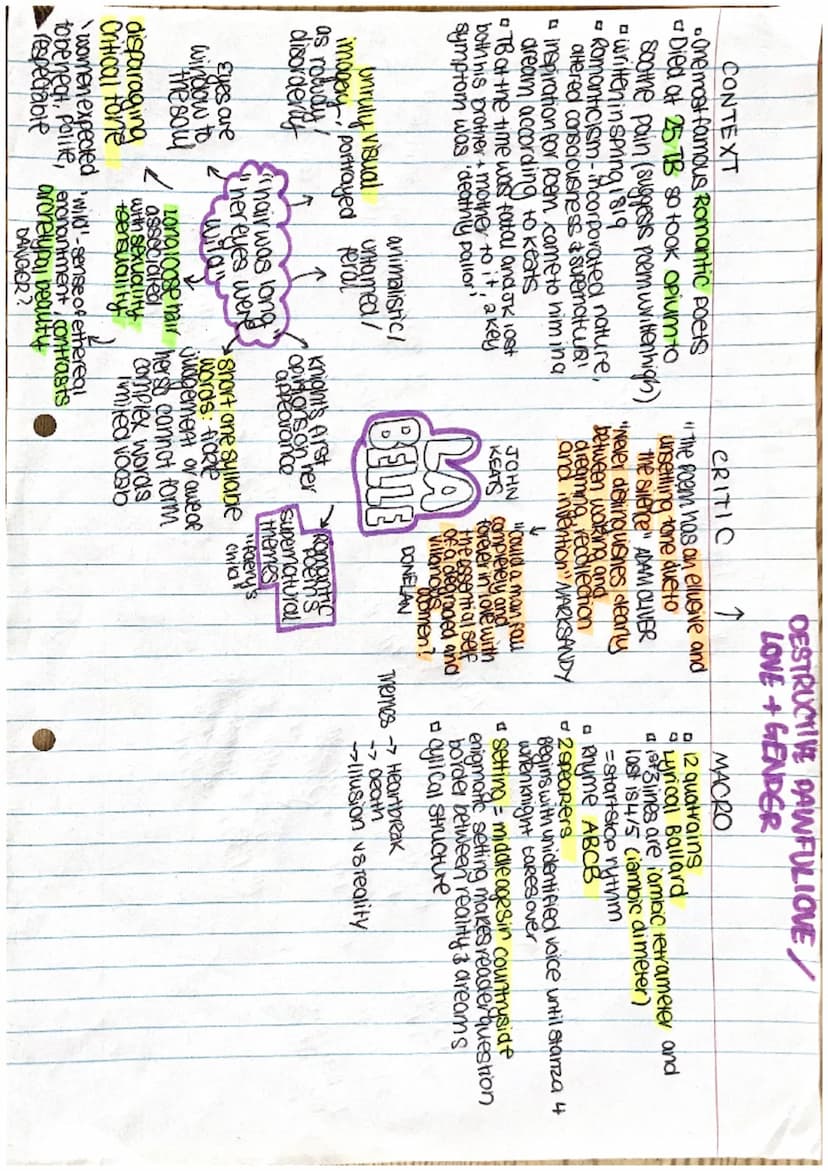 DESTRUCTIVE PAINFUL LOVE /
LOVE + GENDER
CONTEXT
One most famous Romantic poets
Died at 25, TB so took opium to
soothe pain (suggests poem written high)
written in spring 1819
Romanticism - incorporated nature,
altered consciousness & supernatural
inspiration for poem came to him in a
dream, according to Keats
TB at the time was fatal and JK lost
both his brother + mother to it, a key
symptom was 'deathly pallor'
CRITIC
"The poem has an elusive and
unsettling tone due to
the silence" ADAM OLIVER
"Never distinguishes clearly
between waking and
dreaming, recollection
and intention" MARK SANDY
"could a man fall
completely and
forever in love with
the essential self
of a degraded and
villainous
women?"
DONELAN
MACRO
12 quatrains
Lyrical Ballard
1st 3 lines are iambic tetrameter and
last is 4/5 (iambic dimeter)
= start stop rythm
Rhyme ABCB
2 speakers
Begins with unidentified voice until stanza 4
when knight takes over
setting = middle ages in countryside
enigmatic setting makes reader question
border between reality & dreams
cylical structure
Themes → Heartbreak
→ Death
→ Illusion vs reality
JOHN
KEATS
LA
BELLE
"hair was long"
"her eyes were
wild"
animalistic/
untamed/
feral
unruly visual
imagery / portrayed
as rowdy/
disorderly
Eyes are
window to
the soul
disparaging
critical tone
women expected
to be neat, polite,
respectable
long loose hair
associated
with sexuality
+ sensuality
'wild' - sense of ethereal
enchantment, contrasts
archetypal beauty
DANGER?
knights first
opinions on her
appearance
Romantic
poets
supernatural
themes
"faery's
child"
short one syllable
words:
judgement or awe of
her so cannot form
complex words
limited vocab